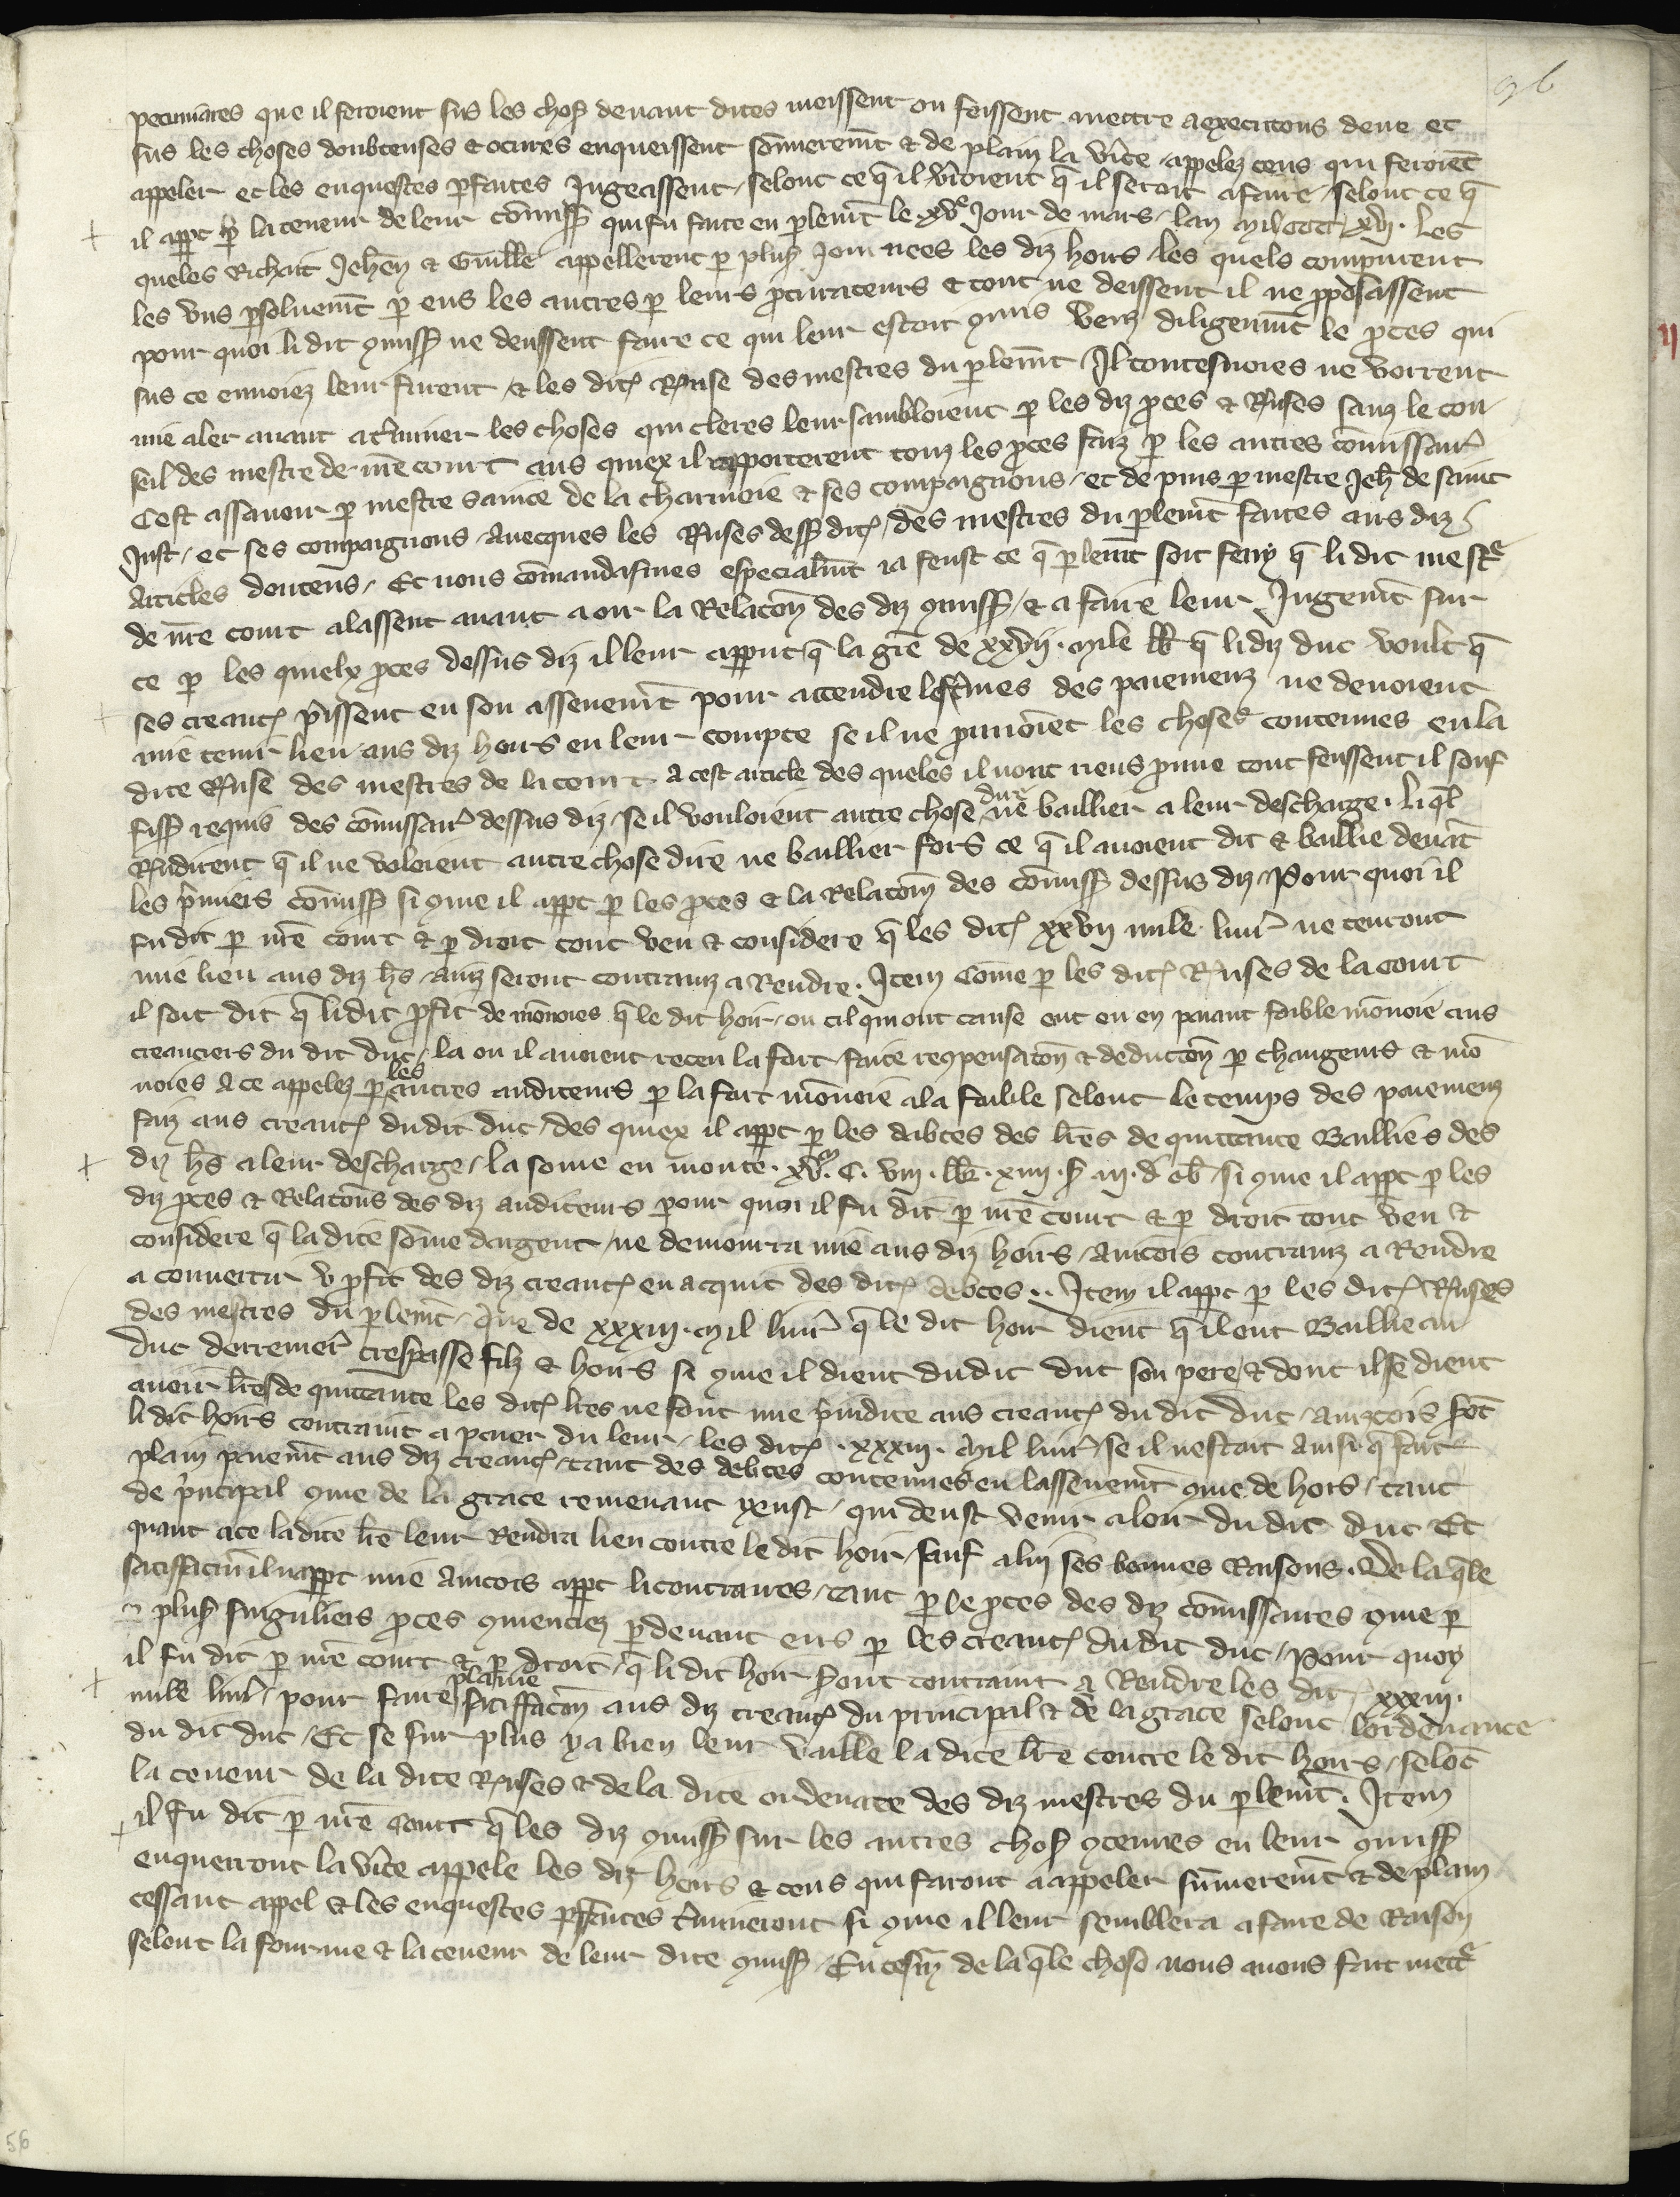 96
pecuniares que il feroient sus les chos devant dites meissent ou feissent mettre a execucions deue et
sus les choses doubteuses et ocures enqueissent sommeremt et de plain la vite appelez ceus qui feroiet
appeler et les enquestes pfaites Jugeassent selont ce q il vroient q il seroit a faire selont ce q
il appt p la teneur de leur comiss qui fu faite en plemt le xve Jour de mars lan mil ccc xvij. Les
queles Richart Jehan et Guille appellerent p plus Journees les diz hoirs les quels comparurent
les uns psoluemt p eus les autres p leurs procurateurs et tout ne deissent il ne pposassent
pour quoi li dit 9miss ne deussent faire ce qui leur estoit 9mis veuz diligenmt le proces qui
sus ce envoiez leur furent et les dites Rnse des mestres du plemt Il toutesvoies ne vorrent
mie aler avant a tminer les choses qui cleres leur sambloient p les diz proces et Rnses sanz le con
seil des mestre de nre court aus quiex il rapporterent touz les proces faiz p les autres comissair
Cest assavoir p mestre Sance de la Charmoie et ses compaignons et de puis p mestre Jeh de saint
Just et ses compaignons avecques les Rnses dess dites des mestres du plemt faites aus diz
Articles douteus Et nous comandasmes especialmt ia feust ce q plemt soit feny q li dit mestr
de nre court alassent avant a oir la Relacon des diz 9miss et a faire leur Jugemt sur
ce p les quielx proces dessus diz il leur apput q la gre de xxvij mile ll q li diz duc voult q
ses creanc pissent en son assenemt pour attendre les tmes des paiemenz ne devoient
mie tenir lieu aus diz hoirs en leur compte se il ne prouvoient les choses contenues en la
dite Rnse des mestres de la court a cest article des queles il nont riens prouve tout feussent il souf
fiss requis des comissair dessus diz se il vouloient autre chose dire ne baillier a leur descharge. li ql
Rndirent q il ne voloient autre chose dire ne baillier fors ce q il avoient dit et baillie devat
les pmiers comiss si 9me il appt p les proces et la Relacom des comiss dessus diz Pour quoi il
fu dit p nre court et p droit tout veu et considere q les dites xxvij mille livr ne tenront
mie lieu aus diz hs ainz seront contrainz a Rendre. Item Come p les dites Rnses de la court
il soit dit q li dit pfit de monoies q le dit hoir ou cil qui ont cause ont eu en paiant foible monoie aus
creanciers du dit duc la ou il avoient receu la fort faite re9pensacon et deduccon p changeurs et mo
noiers a ce appelez p les autres auditeurs p la fort monoie a la foible selont le temps des paiemenz
faiz aus creanc dudit duc des quiex il appt p les dabtes des lres de quittance Baillies des
diz hs a leur descharge la some en monte xvm. C. viij. ll. xiiij. s iij. d ob si 9me il appt p les
diz pces et Relacons des diz auditeurs pour quoi il fu dit p nre court et p droit tout veu et
considere q la dite some dargent ne demourra mie aus diz hoirs Aincois contrainz a Rendre
a convertir v pfit des diz creanc en acquit des dites debtes.. Item il appt p les dites Rnses
des mestres du plemt Que de xxxiij. mil livr q le dit hoir dient q il ont Baillie au
duc derremer trespasse filz et hoirs si 9me il dient dudit duc son pere et dont il se dient
avoir lres de quittance les dites lres ne font mie piudice aus creanc du dit duc ainzcois sot
li dit hoirs contraint a paier du leur les dites. xxxiij. mil livr se il nestoit ainsi q fait
plain paiemt aus diz creanc tant des debtes contenues en lassenemt 9me de hors tant
de pncipal 9me de la grace remenant yeust qui deust venir a loir du dit duc Et
quant a ce ladite lre leur Rendra lieu contre le dit hoir sauf a lui ses bonnes Raisons. De la qle
satiffaction il nappt mie Aincois appt li contraires tant p le proces des diz comissaires 9me p
plus singuliers proces 9menciez pdevant eus p les creanc du dit duc Pour quoy
il fu dit p nre court et p droit q li dit hoir seront contraint a Rendre les dit xxxiij.
mille livr pour faire plaine satiffacon aus diz creanc du principal et de la grace selont lordenance
du dit duc Et se sur plus y a bien leur vaille la dite lre contre le dit hoirs selot
la teneur de la dite Rnses et de la dite ordenace des diz mestres du plemt. Item
il fu dit p nre court q les diz 9miss sur les autres chos 9tenues en leur 9miss
enquerront la vite appele les diz hoirs et ceus qui faront a appeler sumeremt et de plain
cessant appel et les enquestes pfaites tmineront si 9me il leur semblera a faire de Raison
selont la fourme et la teneur de leur dite 9miss En tesm de la qle chose nous avons fait mettr
56